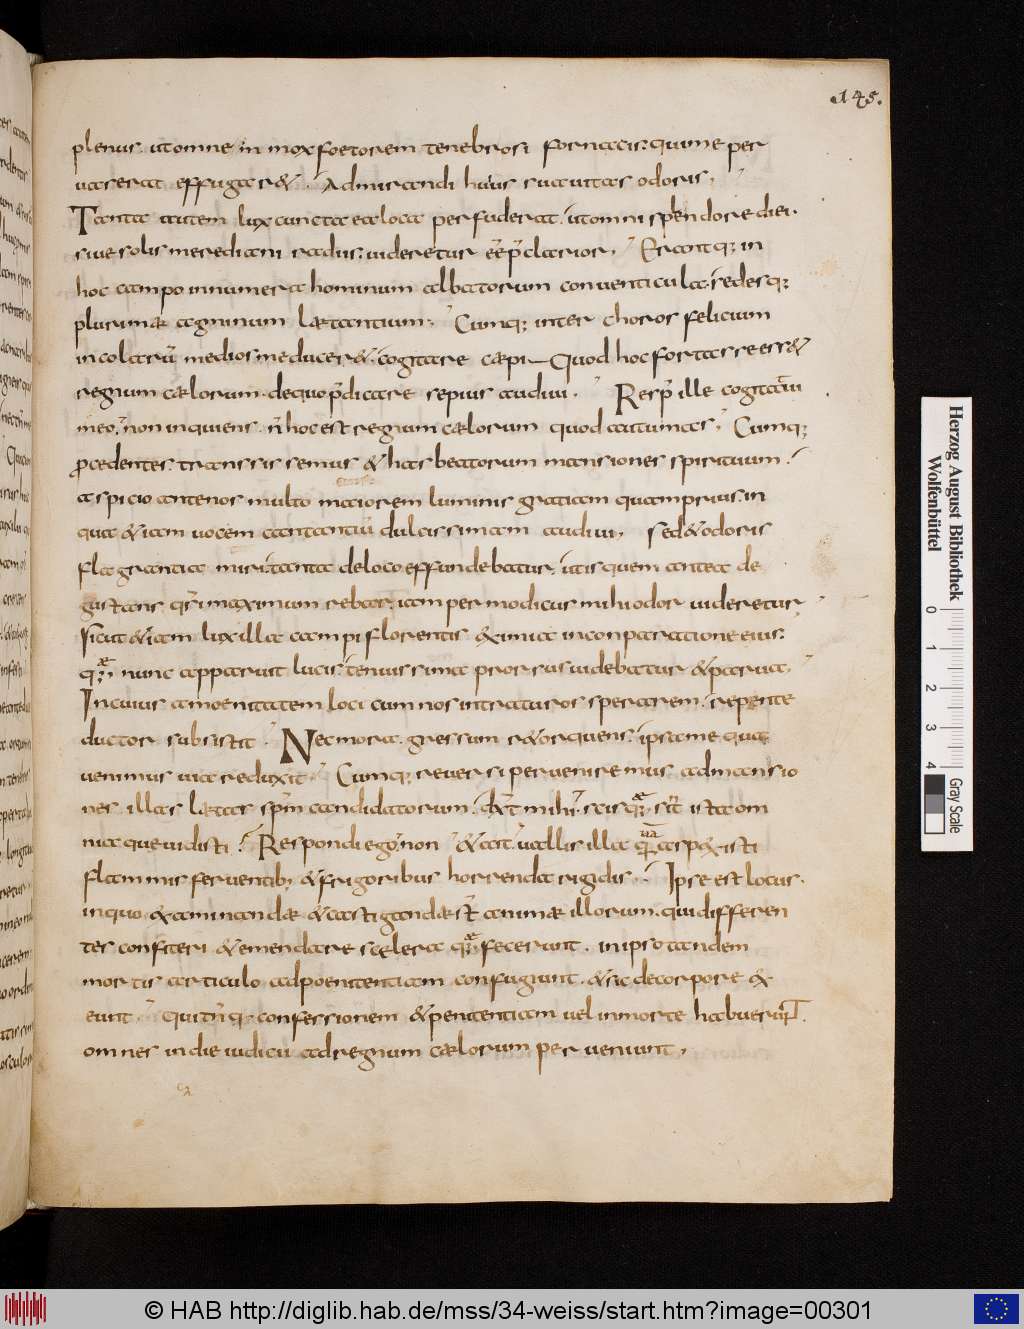 145.
plenus. ut omne in mox foetorem tenebrosi fornacis. qui me per
uaserat effugaret. Admirandi huius suauitas odoris.
Tanta autem lux cuncta ea loca perfuderat. ut omni splendore diei.
siue solis merediani radiis. uideretur eẽ p̄clarior. Erantq; in
hoc campo innumera hominum albatorum conuenticula. sedesq;
plurimae agminum laetantium. Cumq; inter choros felicium
incolarũ medios me duceret. cogitare caepi Quod hoc fortasse esset
regnum caelorum. de quo p̄dicare sepius audiui. Resp̄ ille cogitatui
meo. non inquiens. ñ hoc est regnum caelorum quod autumas. Cumq;
procedentes transsissemus & has beatorum mansiones spirituum.
aspicio ante nos multo maiorem luminis gratiam quam prius. in
qua & iam uocem cantantiũ dulcissimam audiui. sed & odoris
flagrantia miri. tanta de loco effundebatur. ut is quem antea de
gustans q̄si maximum rebar. iam permodicus mihi odor uideretur.
Sicut & iam lux illa campi florentis eximia in conparatione eius.
quae nunc apparuit lucis. tenuissima prorsus uidebatur & parua.
In cuius amoenitatem loci cum nos intraturos sperarem. repente
ductor subsistit. Nec mora. gressum retorquens. ipsa me qua
uenimus uia reduxit. Cumq; reuersi perueniremus ad mansio
nes illas laetas spm̄ candidatorum. dixt̄ mihi. scis quae sũt ista om
nia que uidisti? Respondi ego. non & ait. uallis illa quam aspexisti
flammis feruentib; & frigoribus horrenda rigidis. Ipse est locus.
in quo examinandae & castigandae st̄ animae illorum. qui differen
tes confiteri & emendare scelera quae fecerunt. in ipso tandem
mortis articulo ad poenitentiam confugiunt. & sic de corpore ex
eunt. qui tñ q; confessionem & penitentiam uel in morte habuerunt.
omnes in die iudicii ad regnum caelorum perueniunt.
Herzog August Bibliothek
Wolfenbüttel
0 1 2 3 4
Gray Scale
© HAB http://diglib.hab.de/mss/34-weiss/start.htm?image=00301